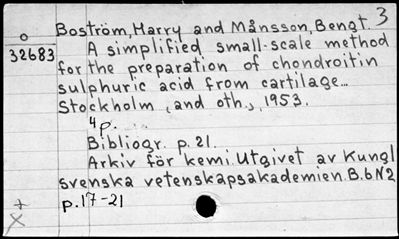 3
Boström, Harry and Månsson, Bengt.
o
32683
A simplified small-scale method
for the preparation of chondroitin
sulphuric acid from cartilage...
Stockholm, and oth., 1953.
4p. ...
Bibliogr. p. 21.
Arkiv för kemi. Utgivet av Kungl
svenska vetenskapsakademien. B.6 N2
+
X
p.17-21